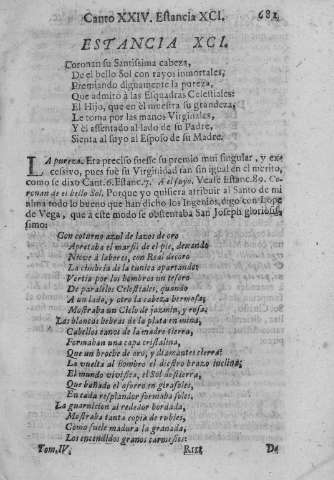 Canto XXIV. Estancia XCI. 681
ESTANCIA XCI.
Coronan su Santissima cabeza,
De el bello Sol con rayos inmortales;
Premiando dignamente la pureza,
Que admitò à las Esquadras Celestiales:
El Hijo, que en èl muestra su grandeza,
Le toma por las manos Virginales,
Y èl assentado al lado de su Padre,
Sienta al suyo al Esposo de su Madre.
LA pureza. Era preciso fuesse su premio mui singular, y ex-
cessivo, pues fuè su Virginidad tan sin igual en el merito,
como se dixo Cant. 6. Estanc. 7. A el suyo. Vease Estanc. 89. Co-
ronan de el bello Sol, Porque yo quisiera atribuir al Santo de mi
alma todo lo bueno que han dicho los Ingenios, digo con Lope
de Vega, que à este modo se obstentaba San Joseph gloriosis-
simo:
Con coturno azul de lazos de oro
Apretaba el marfil de el pie, dexando
Nieve à labores, con Real decoro
La orla de la tunica apartando:
Vertia por los hombros un tesoro
De paralelos Celestiales, quando
A un lado, y otro la cabeza hermosa,
Mostraba un Cielo de jazmin, y rosa.
Las blancas hebras de la plata en mina,
Cabellos canos de la madre tierra,
Formaban una capa cristalina,
Que un broche de oro, y diamantes cierra:
La vuelta al hombro el diestro brazo inclina;
El mundo vivifica, el Sol destierra,
Que bañado el aforro en girasoles,
En cada resplandor formaba soles.
La guarnicion al rededor bordada,
Mostraba tanta copia de rubies,
Como suele madura la granada,
Los encendidos granos carmesies:
Tom. IV. Rrrr De